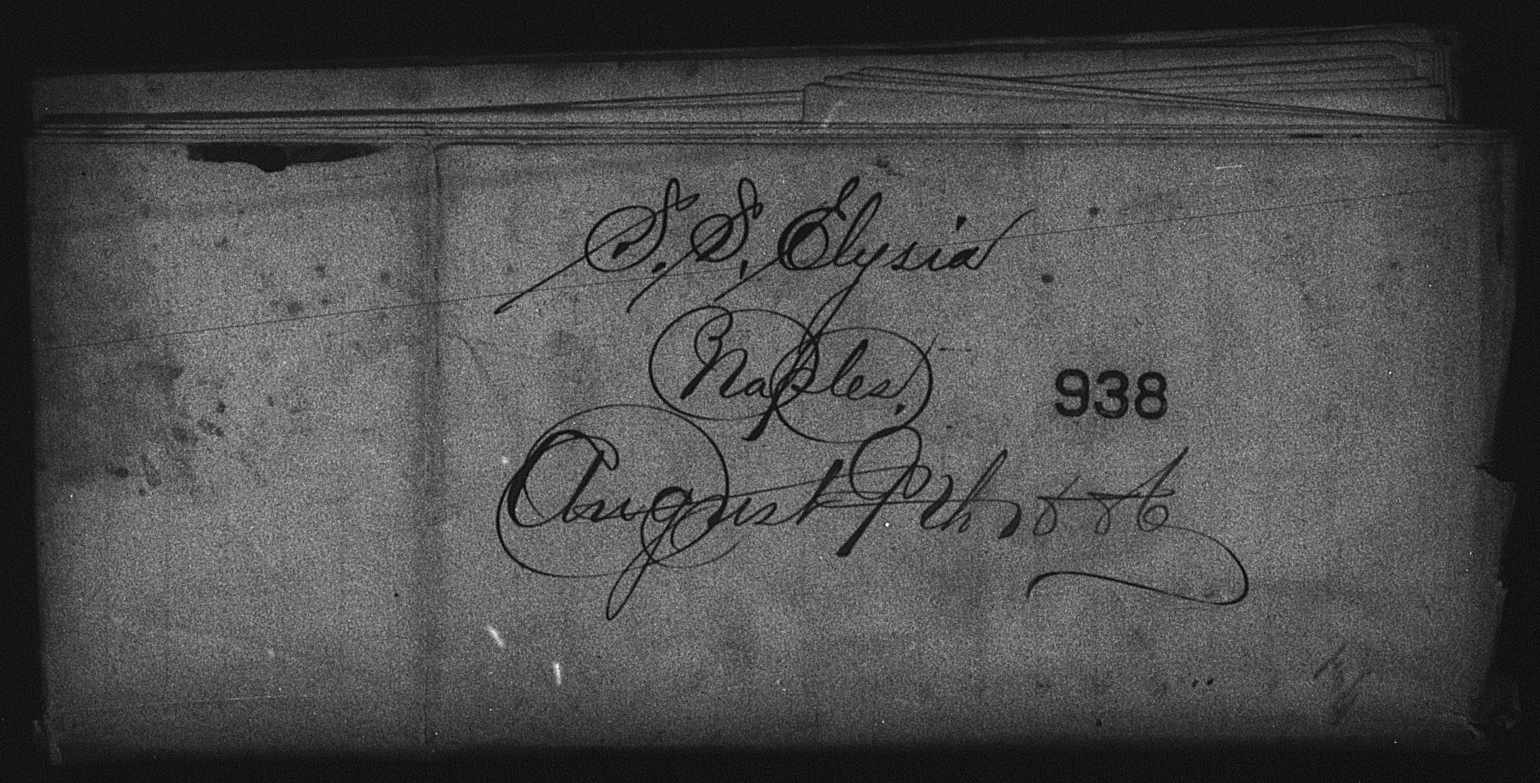 S. S. Elysia
Naples,
938
August 9th 1886